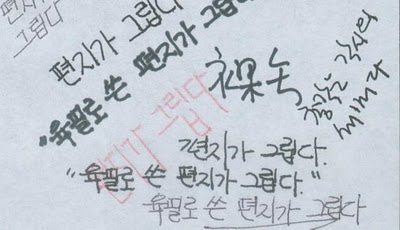 편지가
그립다
편지가 그립다
“육필로 쓴 편지가 그립다
편지가 그립다
편지가 그립다.
“육필로 쓴 편지가 그립다.”
육필로 쓴 편지가 그립다